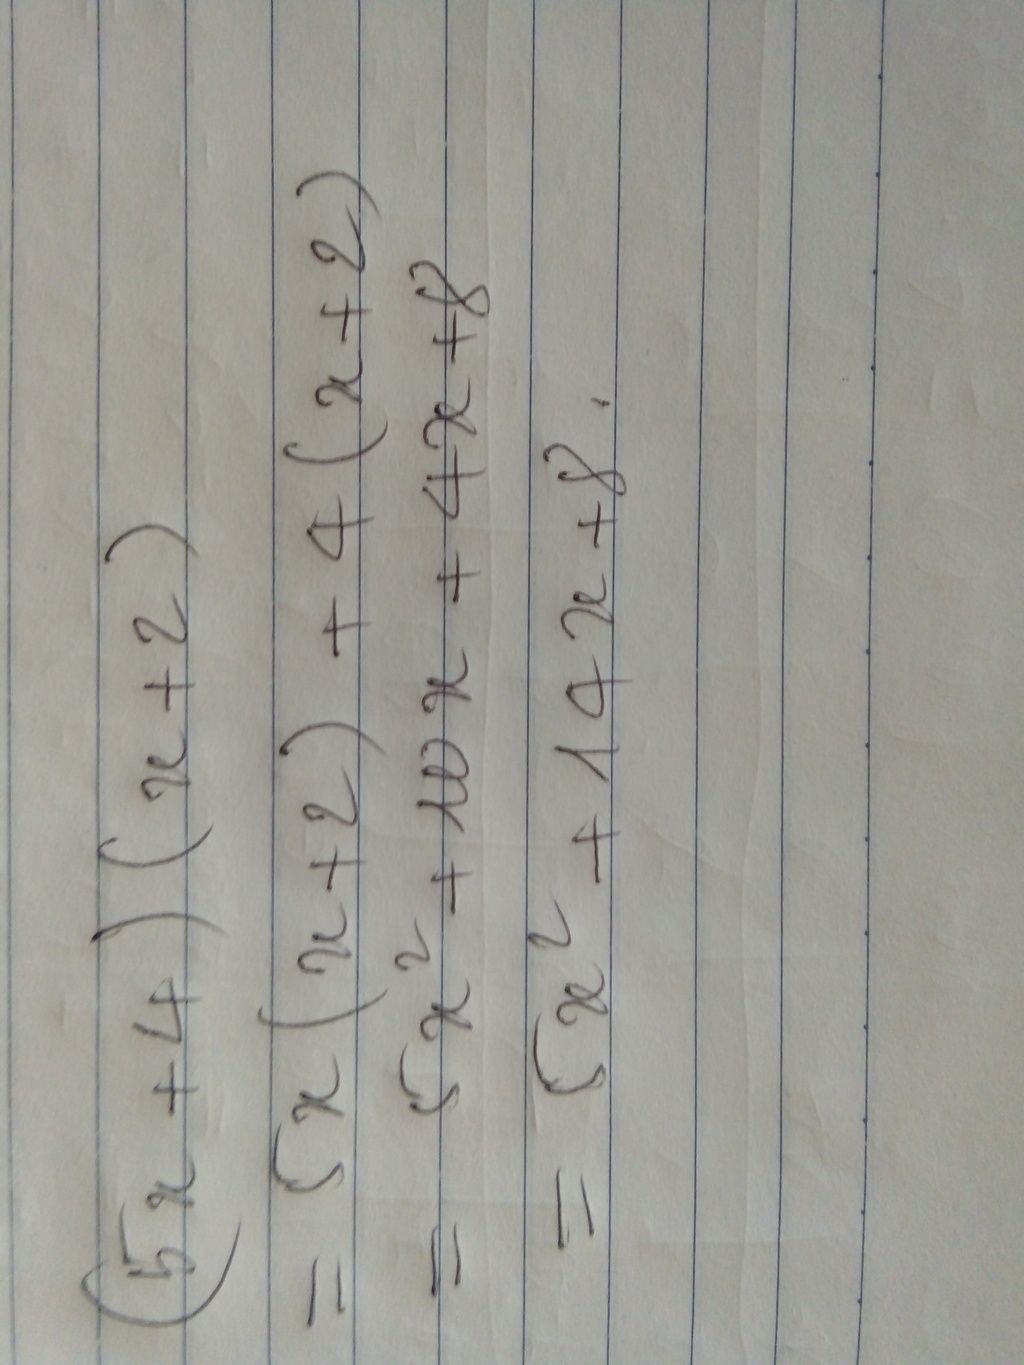 (5x+4)(x+2)
= 5x(x+2)+4(x+2)
= 5x²+10x+4x+8
= 5x²+14x+8.